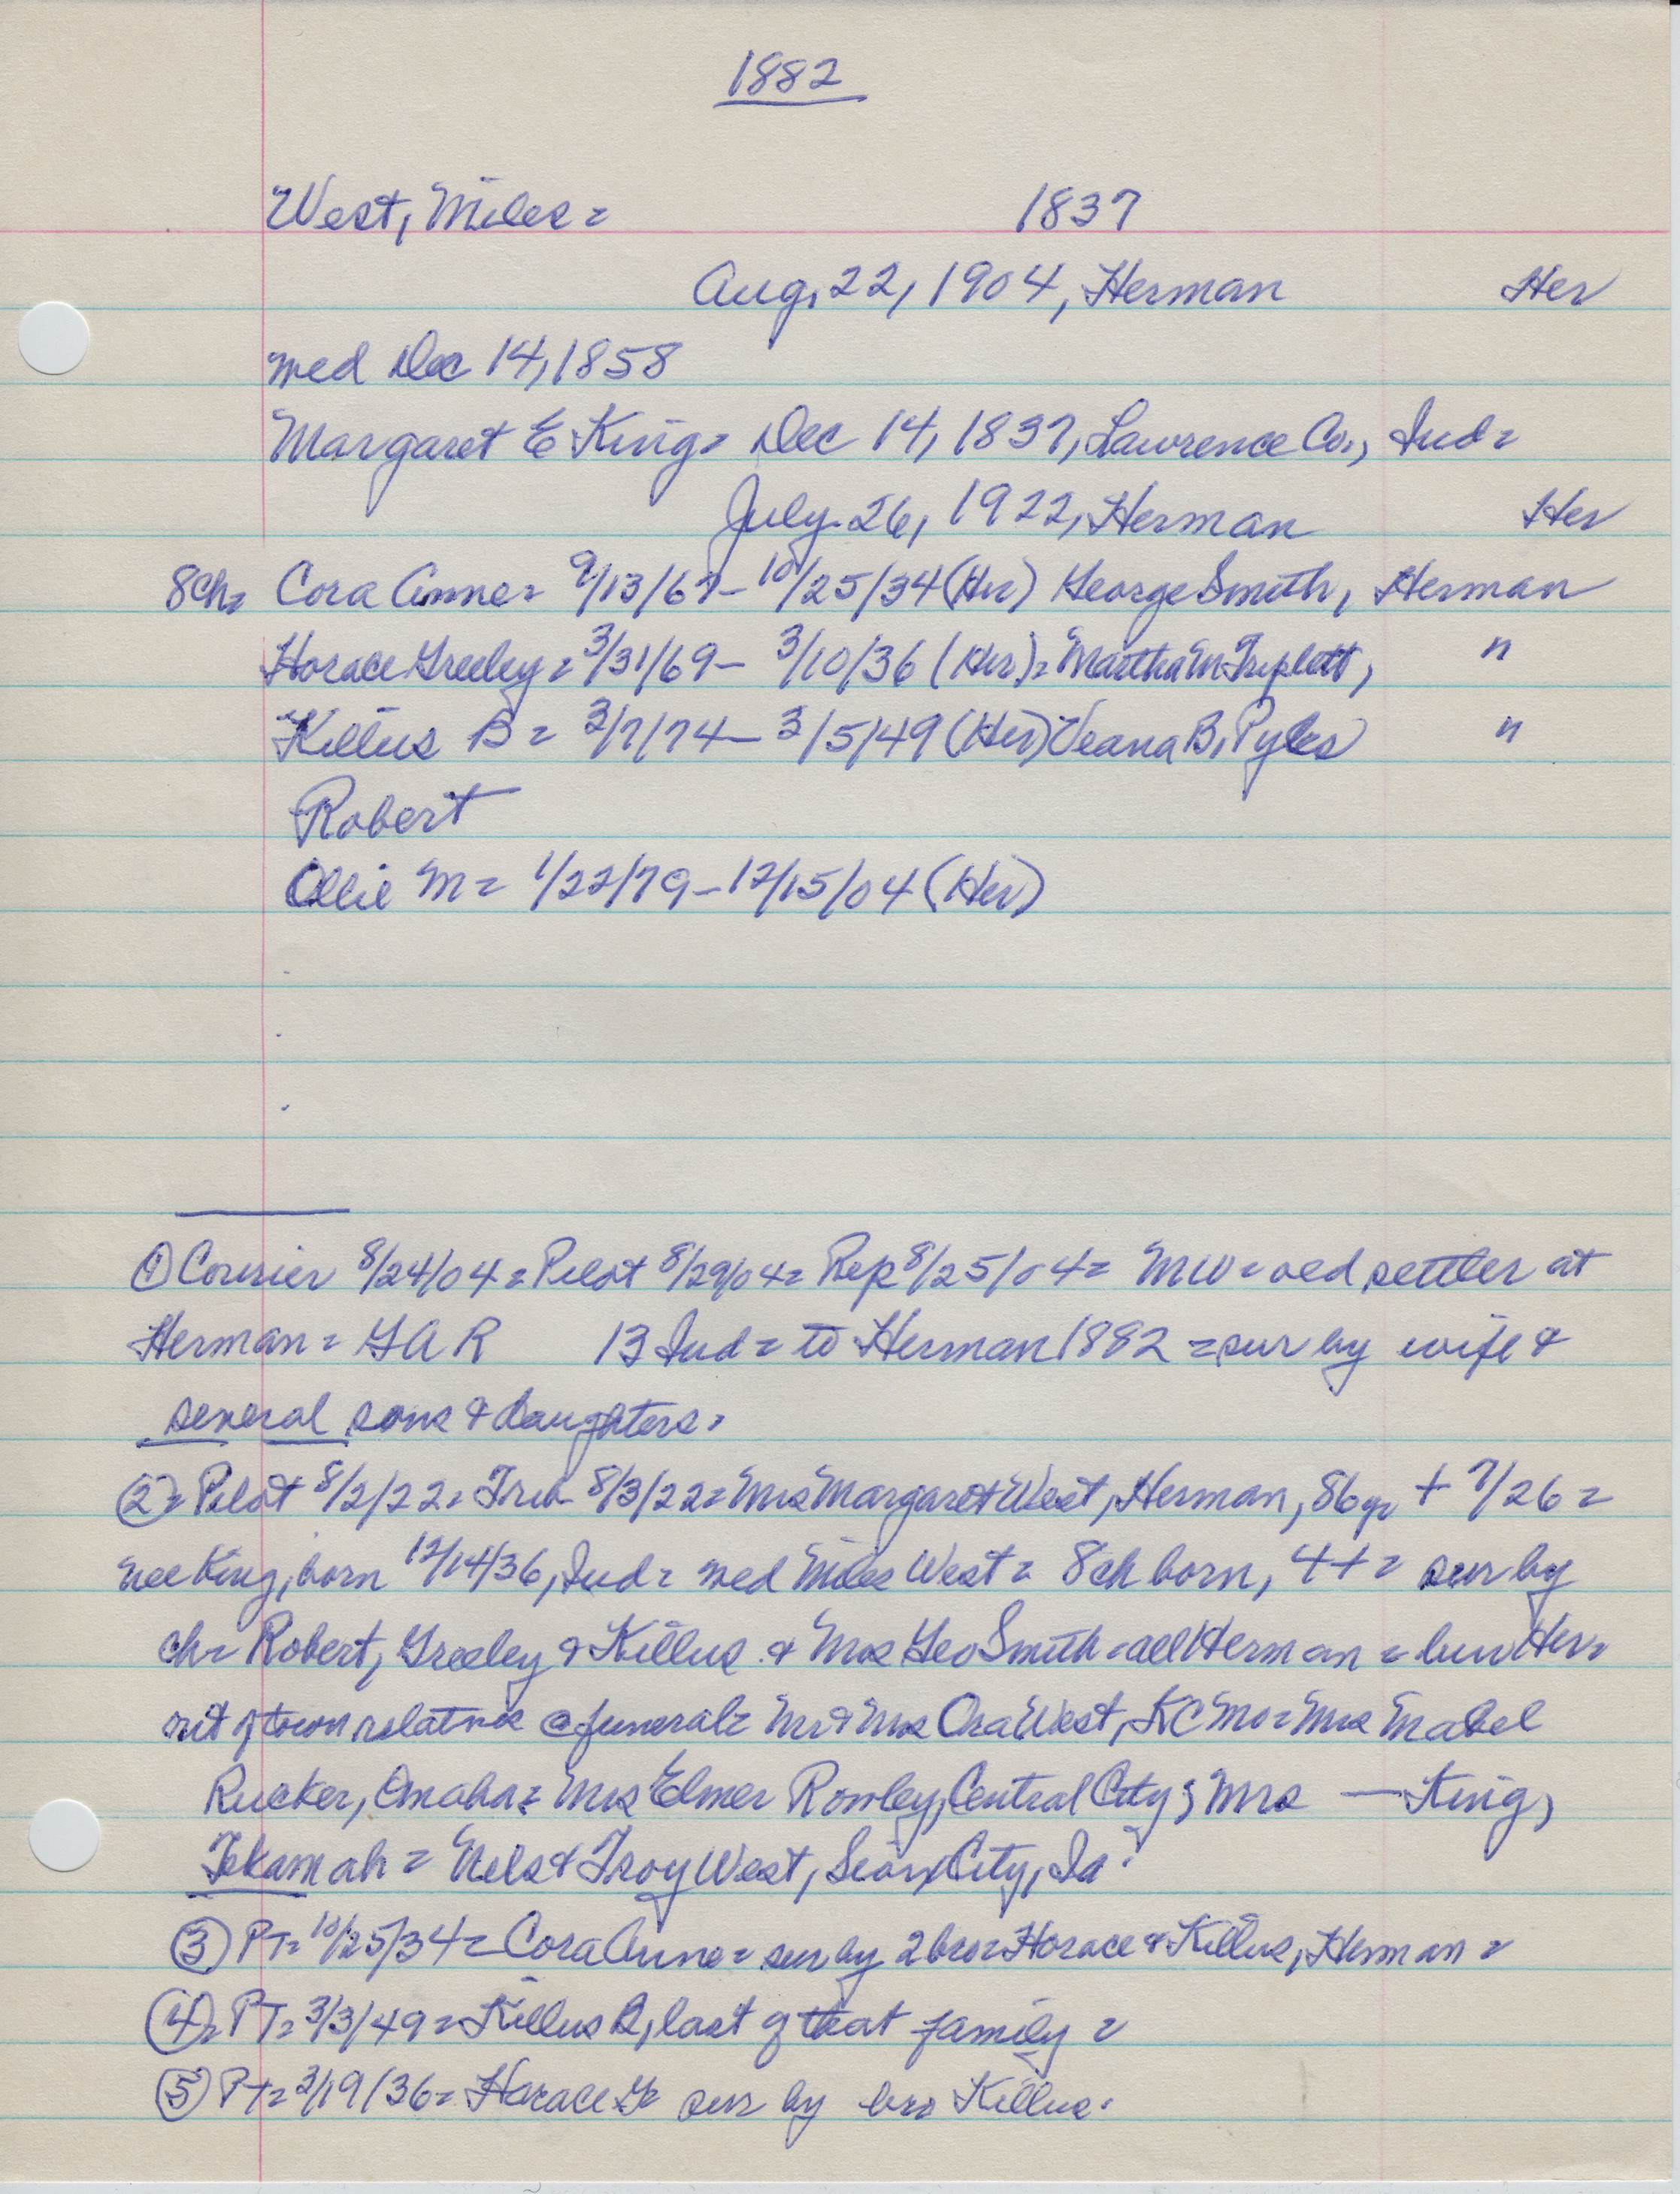 1882
West, Miles = 1837
Aug. 22, 1904, Herman Her
med Dec 14, 1858
Margaret E King = Dec 14, 1837, Lawrence Co., Ind =
July 26, 1922, Herman Her
8ch = Cora Anne = 9/13/67 - 10/25/34 (Her) George Smith, Herman
Horace Greeley = 3/31/69 - 3/10/36 (Her) = Martha M Triplett, "
Killus B = 3/7/74 - 3/5/49 (Her) B. Pyles "
Robert
Ollie M = 1/22/79 - 12/15/04 (Her)
① Courier 8/24/04 = Pilot 8/29/04 = Rep 8/25/04 = MW = old settler at
Herman = GAR 13 Ind = to Herman 1882 = sur by wife &
several sons & daughters.
② = Pilot 8/2/22 = Trib 8/3/22 = Mrs Margaret West, Herman, 86 yr + 7/26 =
nee King, born 12/14/36, Ind = med Miles West = 8 ch born, 4 + = sur by
ch = Robert, Greeley & Killus & Mrs Geo Smith = all Herman = bur Her =
out of town relatives @ funeral = Mr & Mrs Ora West, KC Mo = Mrs Mabel
Rucker, Omaha = Mrs Elmer Rowley, Central City; Mrs — King,
Tekamah = Nels & Troy West, Sioux City, Ia.
③ PT = 10/25/34 = Cora Anne = sur by 2 bro = Horace & Killus, Herman =
④ = PT = 3/3/49 = Killus B, last of that family =
⑤ PT = 3/19/36 = Horace G = sur by bro Killus.